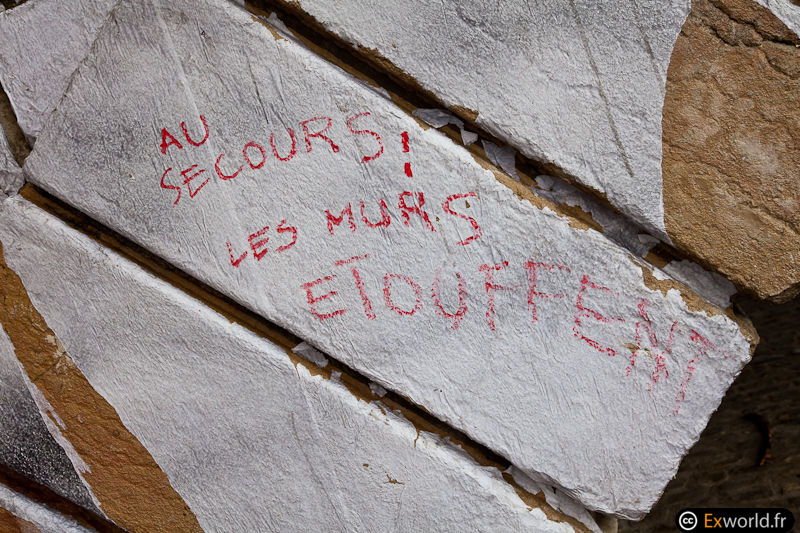 AU
SECOURS!
LES MURS
ETOUFFENT
cc Exworld.fr